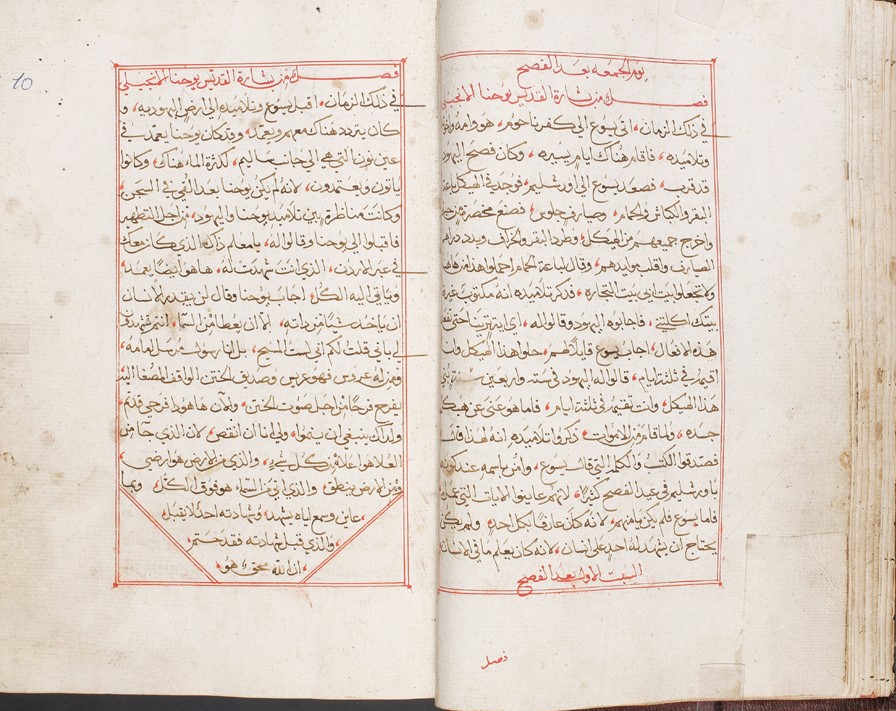 يوم الجمعه بعد الفصح
فصل من بشارة القديس يوحنا الانجيلي
في ذلك الزمان، اتى يسوع الى كفرناحوم، هو وامه
وتلاميذه، فاقام هناك ايام يسيره، وكان فصح اليهود
قد قرب، فصعد يسوع الى اورشليم، فوجد في الهيكل باعة
البقر والكباش والحمام، وصيارف جلوس، فصنع مخصرة من حبل
واخرج جميعهم من الهيكل، وطرد البقر والخراف وبدد دراهم
الصيارف واقلب موايدهم، وقال لباعة الحمام احملوا هذا من هاهنا
ولا تجعلوا بيت ابي بيت التجاره، فذكر تلاميذه انه مكتوب غيرة
بيتك اكلتني، فاجابوه اليهود وقالوا له، اي اية ترينا حتى تفعل
هذه الافعال، اجاب يسوع قايلا لهم، حلوا هذا الهيكل وانا
اقيمه في ثلثة ايام، قالوا له اليهود في سته واربعين سنه بني
هذا الهيكل، وانت تقيمه في ثلثة ايام، فاما هو عنى عن هيكل
جسده، ولما قام من الاموات، ذكروا تلاميذه انه لهذا قال
فصدقوا الكتب والكلمه التي قال يسوع، وامن باسمه عند كونه
باورشليم في عيد الفصح كثيرا، لانهم عاينوا الايات التي عمل
فاما يسوع فلم يكن يامنهم، لانه كان عارفا بكل احد، ولم يكن
يحتاج ان يشهد له احد على انسان، لانه كان يعلم ما في الانسان
السبت الاول بعد الفصح
فصل
10
فصل من بشارة القديس يوحنا الانجيلي
في ذلك الزمان، اقبل يسوع وتلاميذه الى ارض اليهوديه، و
كان يتردد هناك معهم ويعمد، وقد كان يوحنا يعمد في
عين نون التي هي الى جانب ساليم، لكثرة الماء هناك، وكانوا
ياتون ويعتمدون، لانه لم يكن يوحنا بعد القي في السجن،
وكانت مناظرة بين تلاميذ يوحنا واليهود، من اجل التطهير
فاقبلوا الى يوحنا وقالوا له، يا معلم ذاك الذي كان معك
في عبر الاردن، الذي انت شهدت له، ها هو ايضا يعمد
وياتي اليه الكل، اجاب يوحنا وقال لن يقدر الانسان
ان ياخذ شيا من ذاته، الا ان يعطا من السما، انتم تشهدون
لي باني قلت لكم اني لست المسيح، بل انا رسول مرسل امامه،
فمن له عروس فهو عريس وصديق الختن الواقف المصغا اليه
يفرح فرحا من اجل صوت الختن، والان هاهوذا فرحي قد تم،
ولذلك ينبغي ان ينموا، ولي انا ان انقص، لان الذي جا من
العلا هو اعلا من كل شي، والذي من الارض هو ارضي،
ومن الارض ينطق، والذي اتى من السماء هو فوق الكل، وبما
عاين وسمع اياه يشهد، وشهادته احد لا يقبل
، والذي قبل شهادته فقد ختم
، ان الله محق هو،